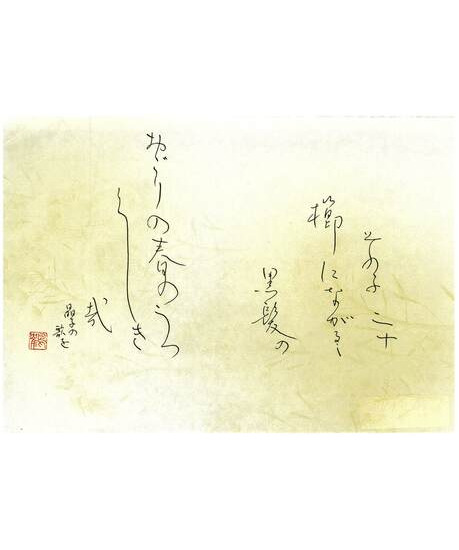 その子二十
櫛にながるゝ
黒髪の
おごりの春のうつ
くしき
哉
晶子の
歌を